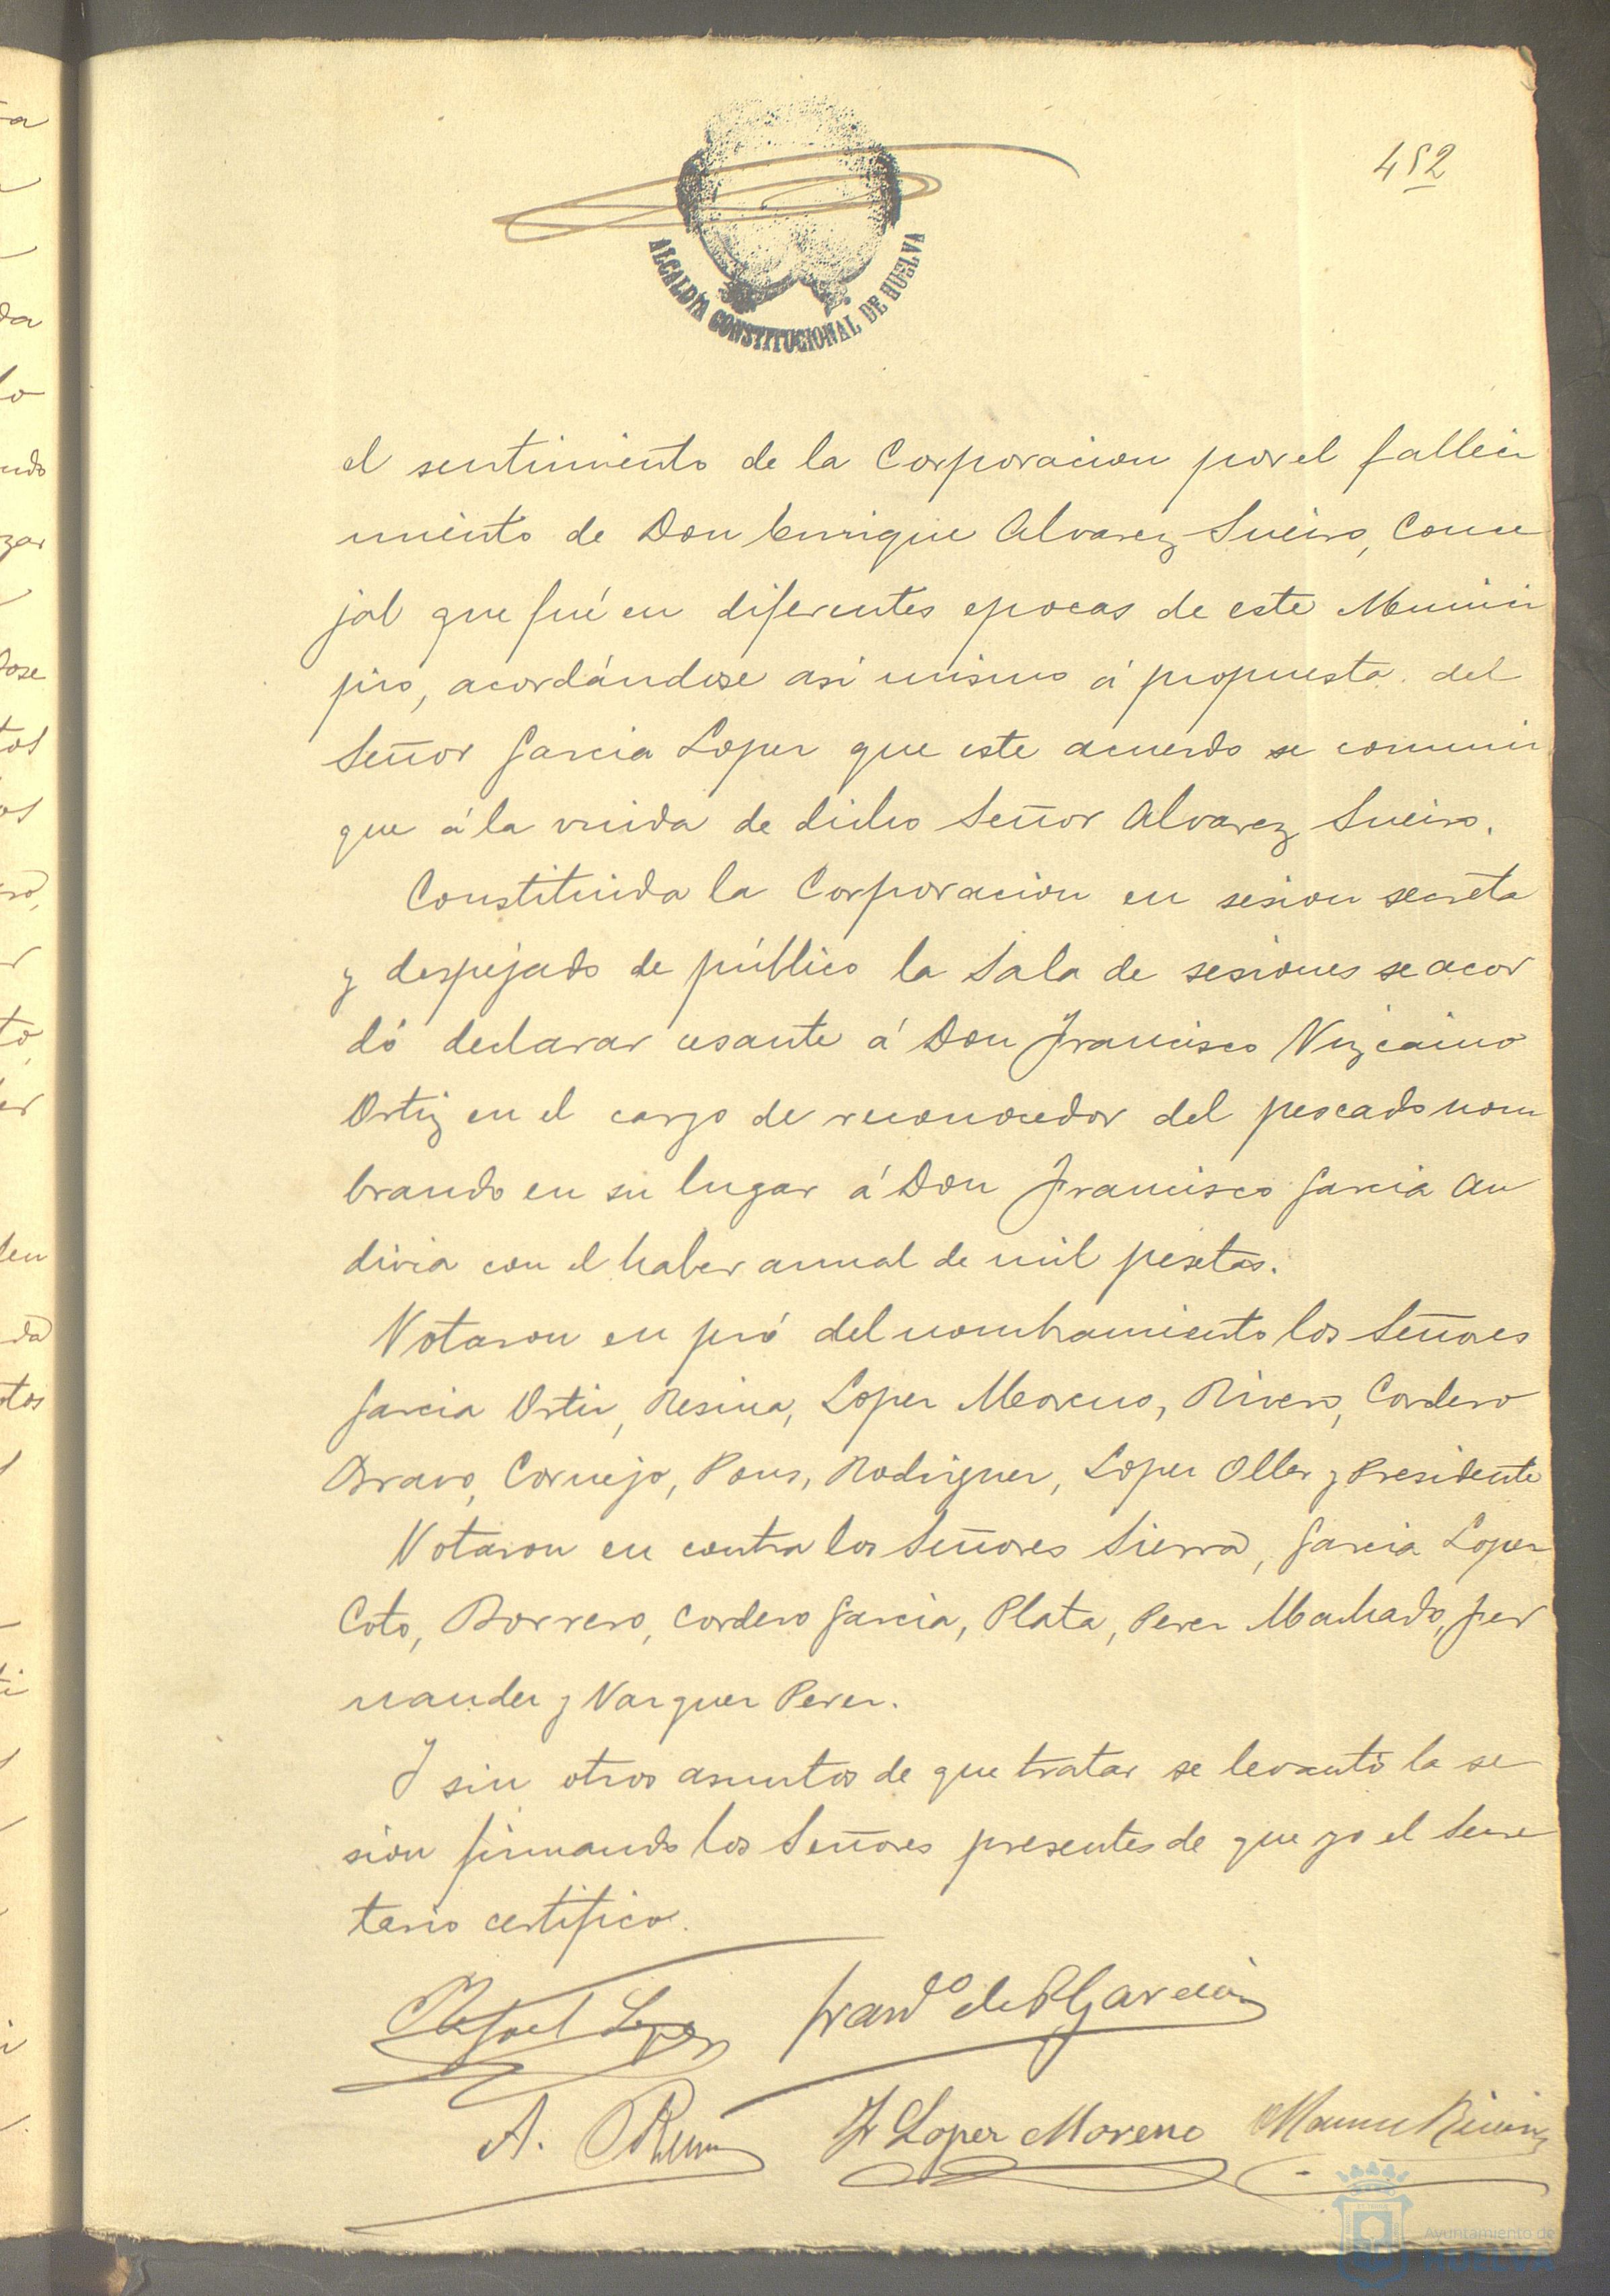 452
ALCALDÍA CONSTITUCIONAL DE HUELVA
el sentimiento de la Corporacion por el falleci
miento de Don Enrique Alvarez Sueiro, Conce
jal que fué en diferentes epocas de este Munici
pio, acordándose asi mismo á propuesta del
Señor Garcia Lopez que este acuerdo se comuni
que á la viuda de dicho Señor Alvarez Sueiro.
Constituida la Corporacion en sesion secreta
y despejado de público la Sala de sesiones se acor
dó declarar cesante á Don Francisco Vizcaino
Ortiz en el cargo de reconocedor del pescado nom
brando en su lugar á Don Francisco Garcia An
divia con el haber anual de mil pesetas.
Votaron en pró del nombramiento los Señores
Garcia Ortiz, Resina, Lopez Moreno, Rivero, Cordero
Bravo, Cornejo, Pons, Rodriguez, Lopez Oller y Presidente
Votaron en contra los Señores Sierra, Garcia Lopez
Coto, Borrero, Cordero Garcia, Plata, Perez Machado, Fer
nandez y Vazquez Perez.
Y sin otros asuntos de que tratar se levantó la se
sion firmando los Señores presentes de que yo el Secre
tario certifico.
Rafael Lopez Franco de P Garcia
A. F Lopez Moreno Manuel
Ayuntamiento de
HUELVA